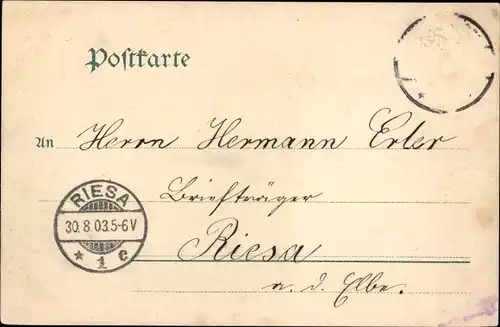 Postkarte
An Herrn Hermann Erler
Briefträger
RIESA
30.8.03.5-6V
* 1 c
Riesa
a. d. Elbe.